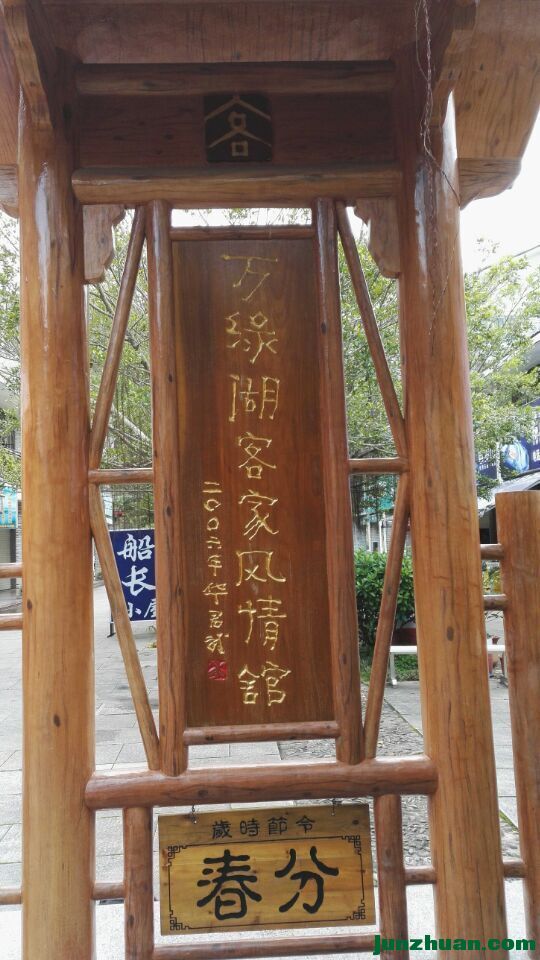 客
万綠湖客家风情館
二〇〇六年华君武
船
长
小
歲時節令
春分
junzhuan.com